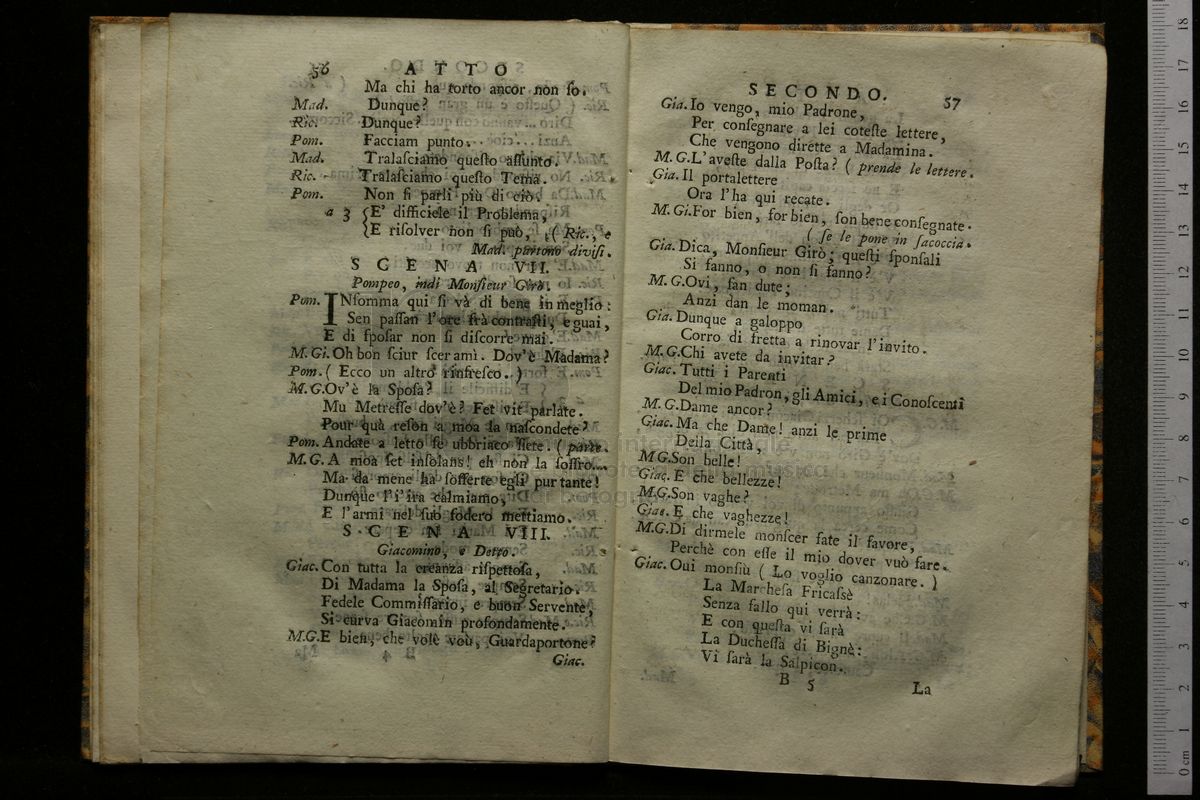 56 ATTO
Ma chi ha torto ancor non ſo.
Mad. Dunque?
Ric. Dunque?
Pom. Facciam punto.
Mad. Tralaſciamo queſto aſſunto.
Ric. Tralaſciamo queſto Tema.
Pom. Non ſi parli più di ciò.
a 3 {E' difficile il Problema,
{E riſolver non ſi può, (Ric., e
Mad. partono diviſi.
SCENA VII.
Pompeo, indi Monſieur Girò.
Pom. INſomma qui ſi và di bene in meglio:
Sen paſſan l'ore frà contraſti, e guai,
E di ſpoſar non ſi diſcorre mai.
M. Gi. Oh bon ſciur ſcer amì. Dov'è Madama?
Pom. (Ecco un altro rinfreſco.)
M. G. Ov'è la Spoſa?
Mu Metreſſe dov'è? Fet vit parlate.
Pour quà reſon a moa la naſcondete?
Pom. Andate a letto ſe ubbriaco ſiete. (parte.
M. G. A moà ſet inſolans! eh non la ſoffro...
Ma da mene ha ſofferte egli pur tante!
Dunque l'ira calmiamo,
E l'armi nel ſuo fodero mettiamo.
SCENA VIII.
Giacomino, e Detto.
Giac. Con tutta la creanza riſpettoſa,
Di Madama la Spoſa, al Segretario.
Fedele Commiſſario, e buon Servente,
Si curva Giacomin profondamente.
M. G. E bien, che volè vou, Guardaportone?
Giac.
SECONDO. 57
Gia. Io vengo, mio Padrone,
Per conſegnare a lei coteſte lettere,
Che vengono dirette a Madamina.
M. G. L'aveſte dalla Poſta? (prende le lettere.
Gia. Il portalettere
Ora l'ha qui recate.
M. Gi. For bien, for bien, ſon bene conſegnate.
(ſe le pone in ſaccoccia.
Gia. Dica, Monſieur Girò; queſti ſponſali
Si fanno, o non ſi fanno?
M. G. Ovi, ſan dute;
Anzi dan le moman.
Gia. Dunque a galoppo
Corro di fretta a rinovar l'invito.
M. G. Chi avete da invitar?
Giac. Tutti i Parenti
Del mio Padron, gli Amici, e i Conoſcenti
M. G. Dame ancor?
Giac. Ma che Dame! anzi le prime
Della Città,
M G. Son belle!
Giac. E che bellezze!
M. G. Son vaghe?
Giac. E che vaghezze!
M. G. Di dirmele monſcer fate il favore,
Perchè con eſſe il mio dover vuò fare.
Giac. Oui monſiù (Lo voglio canzonare.)
La Marcheſa Fricaſsè
Senza fallo qui verrà:
E con queſta vi ſarà
La Ducheſſa di Bignè:
Vi ſarà la Salpicon.
B 5 La